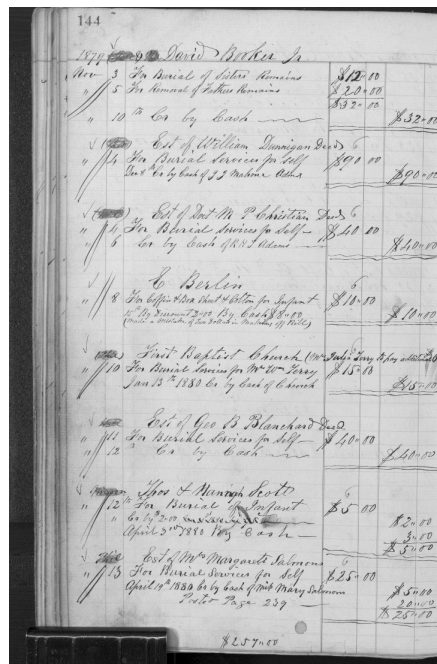 144
1879 David Booker Jr
Nov 3 For Burial of Sisters Remains $12"00
" 5 For Removal of Fathers Remains $20"00
$32"00
" 10th Cr by Cash $32"00
Est of William Dunnigan Decd 6
" 4 For Burial Services for Self $90 00
Dec 8th Cr by Cash of J J Mahone Admr $90"00
Est of Doct Wm P Christian Decd 6
" 4 For Burial Services for Self $40 00
" 6 Cr by Cash of Admr $40"00
E Berlin 6
" 8 For Coffin & Box Sheet & Cotton for Infant $10"00
15th By Discount 2"00 By Cash $8"00 $10"00
(Made a Mistake of Two Dollars in off Bill)
First Baptist Church (Mrs Julia Terry to pay
" 10 For Burial Services for Mr Wm Terry $15"00
Jan 13th 1880 Cr by Cash of Church $15"00
Est of Geo B Blanchard Decd
" 11 For Burial Services for Self $40"00
" 12 Cr by Cash $40"00
Thos & Hannah Scott 6
" 12th For Burial of Infant $5 00
" Cr by 2"00 $2"00
April 3rd 1880 By Cash 3"00
$5"00
Est of Mrs Margaret Salmons 6
" 13 For Burial Services for Self $25"00
April 19th 1880 Cr by Cash of Miss Mary Salmons $5"00
Posted Page 239 20"00
$25"00
$257"00